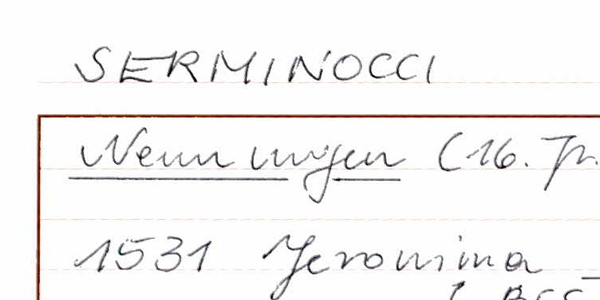 SERMINOCCI
Nennungen (16. Jh.
1531 Jeronima